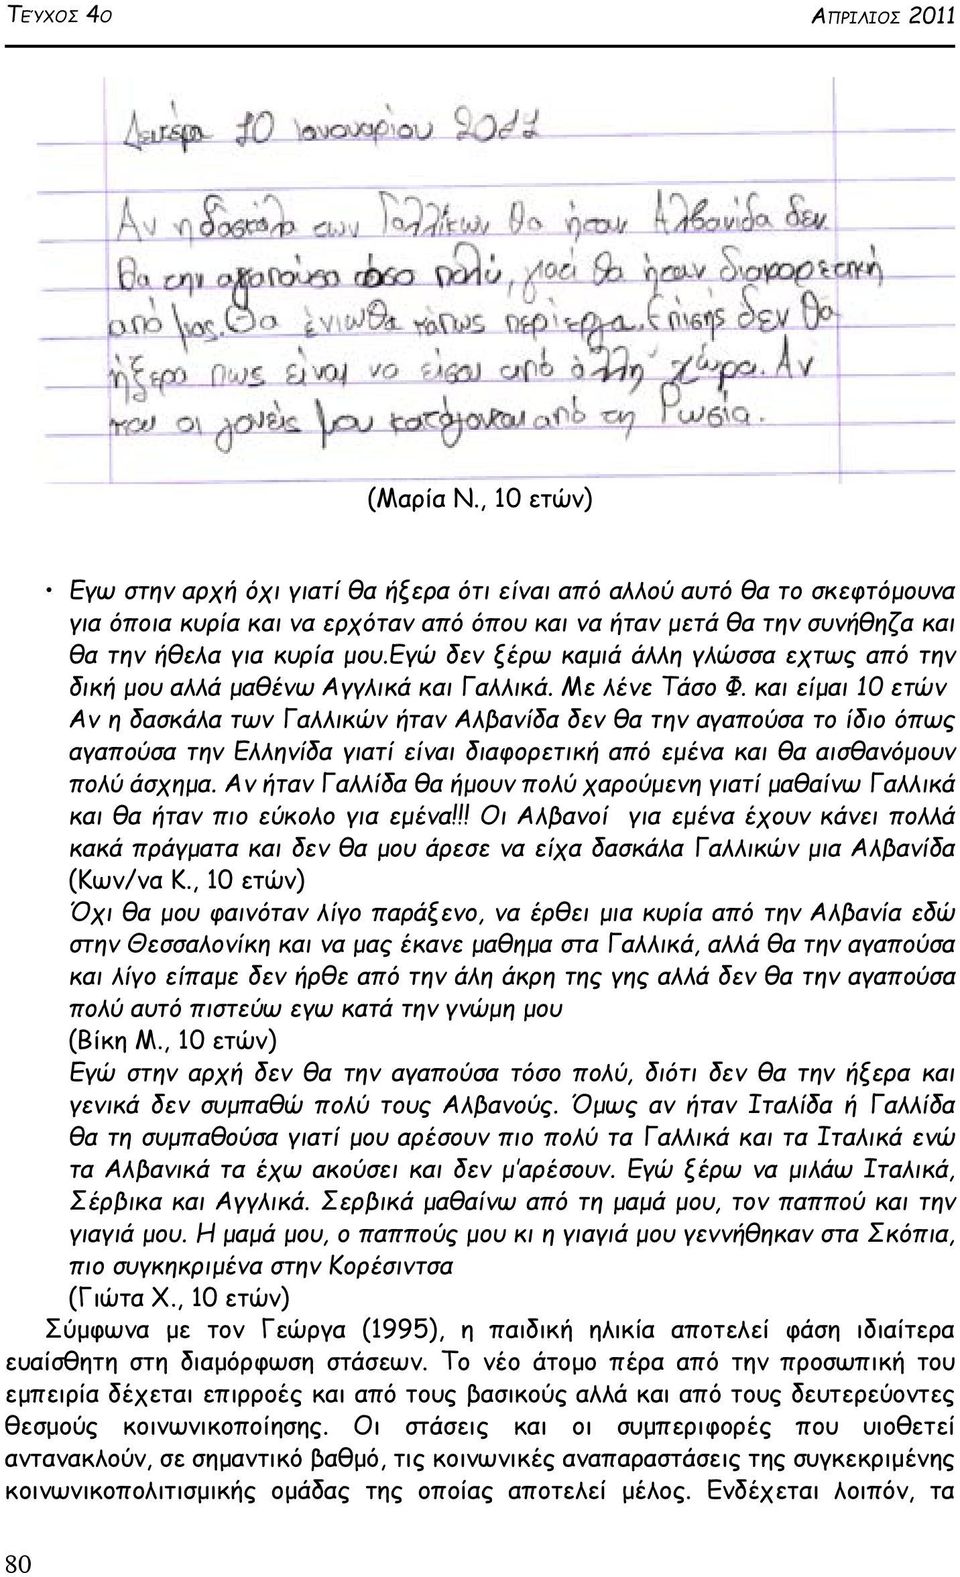 ΤΕΎΧΟΣ 4Ο ΑΠΡΙΛΙΟΣ 2011
Δευτέρα 10 Ιανουαρίου 2011
Αν η δασκάλα των Γαλλικων θα ήταν Αλβανίδα δεν
θα την αγαπούσα τόσο πολύ, γιατί θα ήταν διαφορετική
από μας. Θα ένιωθα κάπως περίεργα. Επίσης δεν θα
ήξερα πως είναι να είσαι από άλλη χώρα. Αν
και οι γονείς μου κατάγονται από τη Ρωσία.
(Μαρία Ν., 10 ετών)
• Εγω στην αρχή όχι γιατί θα ήξερα ότι είναι από αλλού αυτό θα το σκεφτόμουνα
για όποια κυρία και να ερχόταν από όπου και να ήταν μετά θα την συνήθηζα και
θα την ήθελα για κυρία μου.Εγώ δεν ξέρω καμιά άλλη γλώσσα εχτως από την
δική μου αλλά μαθένω Αγγλικά και Γαλλικά. Με λένε Τάσο Φ. και είμαι 10 ετών
Αν η δασκάλα των Γαλλικών ήταν Αλβανίδα δεν θα την αγαπούσα το ίδιο όπως
αγαπούσα την Ελληνίδα γιατί είναι διαφορετική από εμένα και θα αισθανόμουν
πολύ άσχημα. Αν ήταν Γαλλίδα θα ήμουν πολύ χαρούμενη γιατί μαθαίνω Γαλλικά
και θα ήταν πιο εύκολο για εμένα!!! Οι Αλβανοί για εμένα έχουν κάνει πολλά
κακά πράγματα και δεν θα μου άρεσε να είχα δασκάλα Γαλλικών μια Αλβανίδα
(Κων/να Κ., 10 ετών)
Όχι θα μου φαινόταν λίγο παράξενο, να έρθει μια κυρία από την Αλβανία εδώ
στην Θεσσαλονίκη και να μας έκανε μαθημα στα Γαλλικά, αλλά θα την αγαπούσα
και λίγο είπαμε δεν ήρθε από την άλη άκρη της γης αλλά δεν θα την αγαπούσα
πολύ αυτό πιστεύω εγω κατά την γνώμη μου
(Βίκη Μ., 10 ετών)
Εγώ στην αρχή δεν θα την αγαπούσα τόσο πολύ, διότι δεν θα την ήξερα και
γενικά δεν συμπαθώ πολύ τους Αλβανούς. Όμως αν ήταν Ιταλίδα ή Γαλλίδα
θα τη συμπαθούσα γιατί μου αρέσουν πιο πολύ τα Γαλλικά και τα Ιταλικά ενώ
τα Αλβανικά τα έχω ακούσει και δεν μ'αρέσουν. Εγώ ξέρω να μιλάω Ιταλικά,
Σέρβικα και Αγγλικά. Σερβικά μαθαίνω από τη μαμά μου, τον παππού και την
γιαγιά μου. Η μαμά μου, ο παππούς μου κι η γιαγιά μου γεννήθηκαν στα Σκόπια,
πιο συγκηκριμένα στην Κορέσιντσα
(Γιώτα Χ., 10 ετών)
Σύμφωνα με τον Γεώργα (1995), η παιδική ηλικία αποτελεί φάση ιδιαίτερα
ευαίσθητη στη διαμόρφωση στάσεων. Το νέο άτομο πέρα από την προσωπική του
εμπειρία δέχεται επιρροές και από τους βασικούς αλλά και από τους δευτερεύοντες
θεσμούς κοινωνικοποίησης. Οι στάσεις και οι συμπεριφορές που υιοθετεί
αντανακλούν, σε σημαντικό βαθμό, τις κοινωνικές αναπαραστάσεις της συγκεκριμένης
κοινωνικοπολιτισμικής ομάδας της οποίας αποτελεί μέλος. Ενδέχεται λοιπόν, τα
80